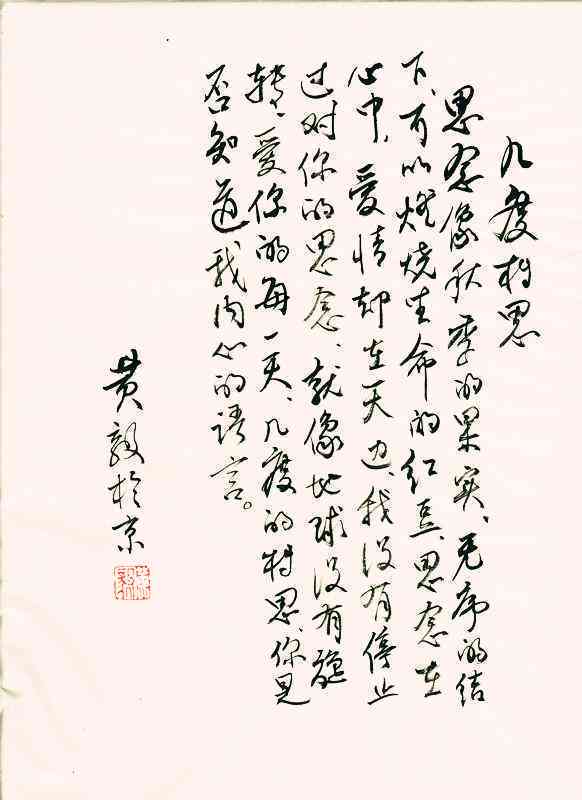 几度相思
思念像秋季的果实、无序的结
下、可以燃烧生命的红豆、思念在
心中，爱情却在天边、我没有停止
过对你的思念、就像地球没有旋
转、爱你的每一天、几度的相思、你是
否知道我内心的语言。
黄毅於京